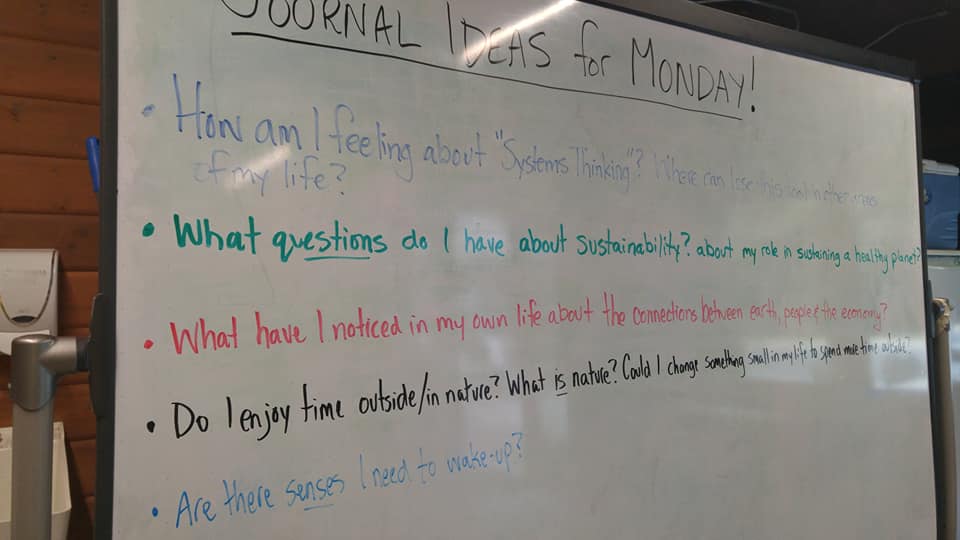 JOURNAL IDEAS for MONDAY!
• How am I feeling about "Systems Thinking"? Where can I use this tool in other areas
of my life?
• What questions do I have about sustainability? about my role in sustaining a healthy planet?
• What have I noticed in my own life about the connections between earth, people & the economy?
• Do I enjoy time outside/in nature? What is nature? Could I change something small in my life to spend more time outside?
• Are there senses I need to wake-up?